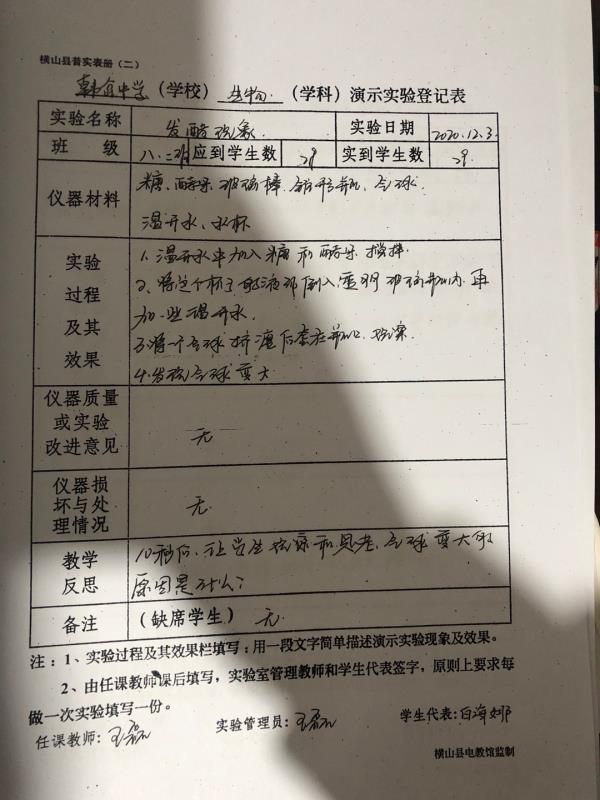 横山县普实表册（二）
韩岔中学（学校） 生物（学科）演示实验登记表
实验名称 发酵现象 实验日期 2020.12.3.
班 级 八.二班 应到学生数 29 实到学生数 29.
仪器材料 糖、酵母、玻璃棒、锥形瓶、气球、
温开水、水杯
实验过程及其效果 1、温开水中加入糖和酵母，搅拌.
2、将这个杯子的液体倒入透明玻璃瓶内，再
加一些温开水.
3、将一个气球挤瘪后套在瓶口，观察
4、发现气球变大
仪器质量或实验改进意见 无
仪器损坏与处理情况 无.
教学反思 10秒后，让学生观察和思考，气球变大的
原因是什么？
备注 （缺席学生） 无.
注：1、实验过程及其效果栏填写：用一段文字简单描述演示实验现象及效果。
2、由任课教师课后填写，实验室管理教师和学生代表签字，原则上要求每
做一次实验填写一份。
任课教师：王磊 实验管理员：王磊 学生代表：白海娜
横山县电教馆监制